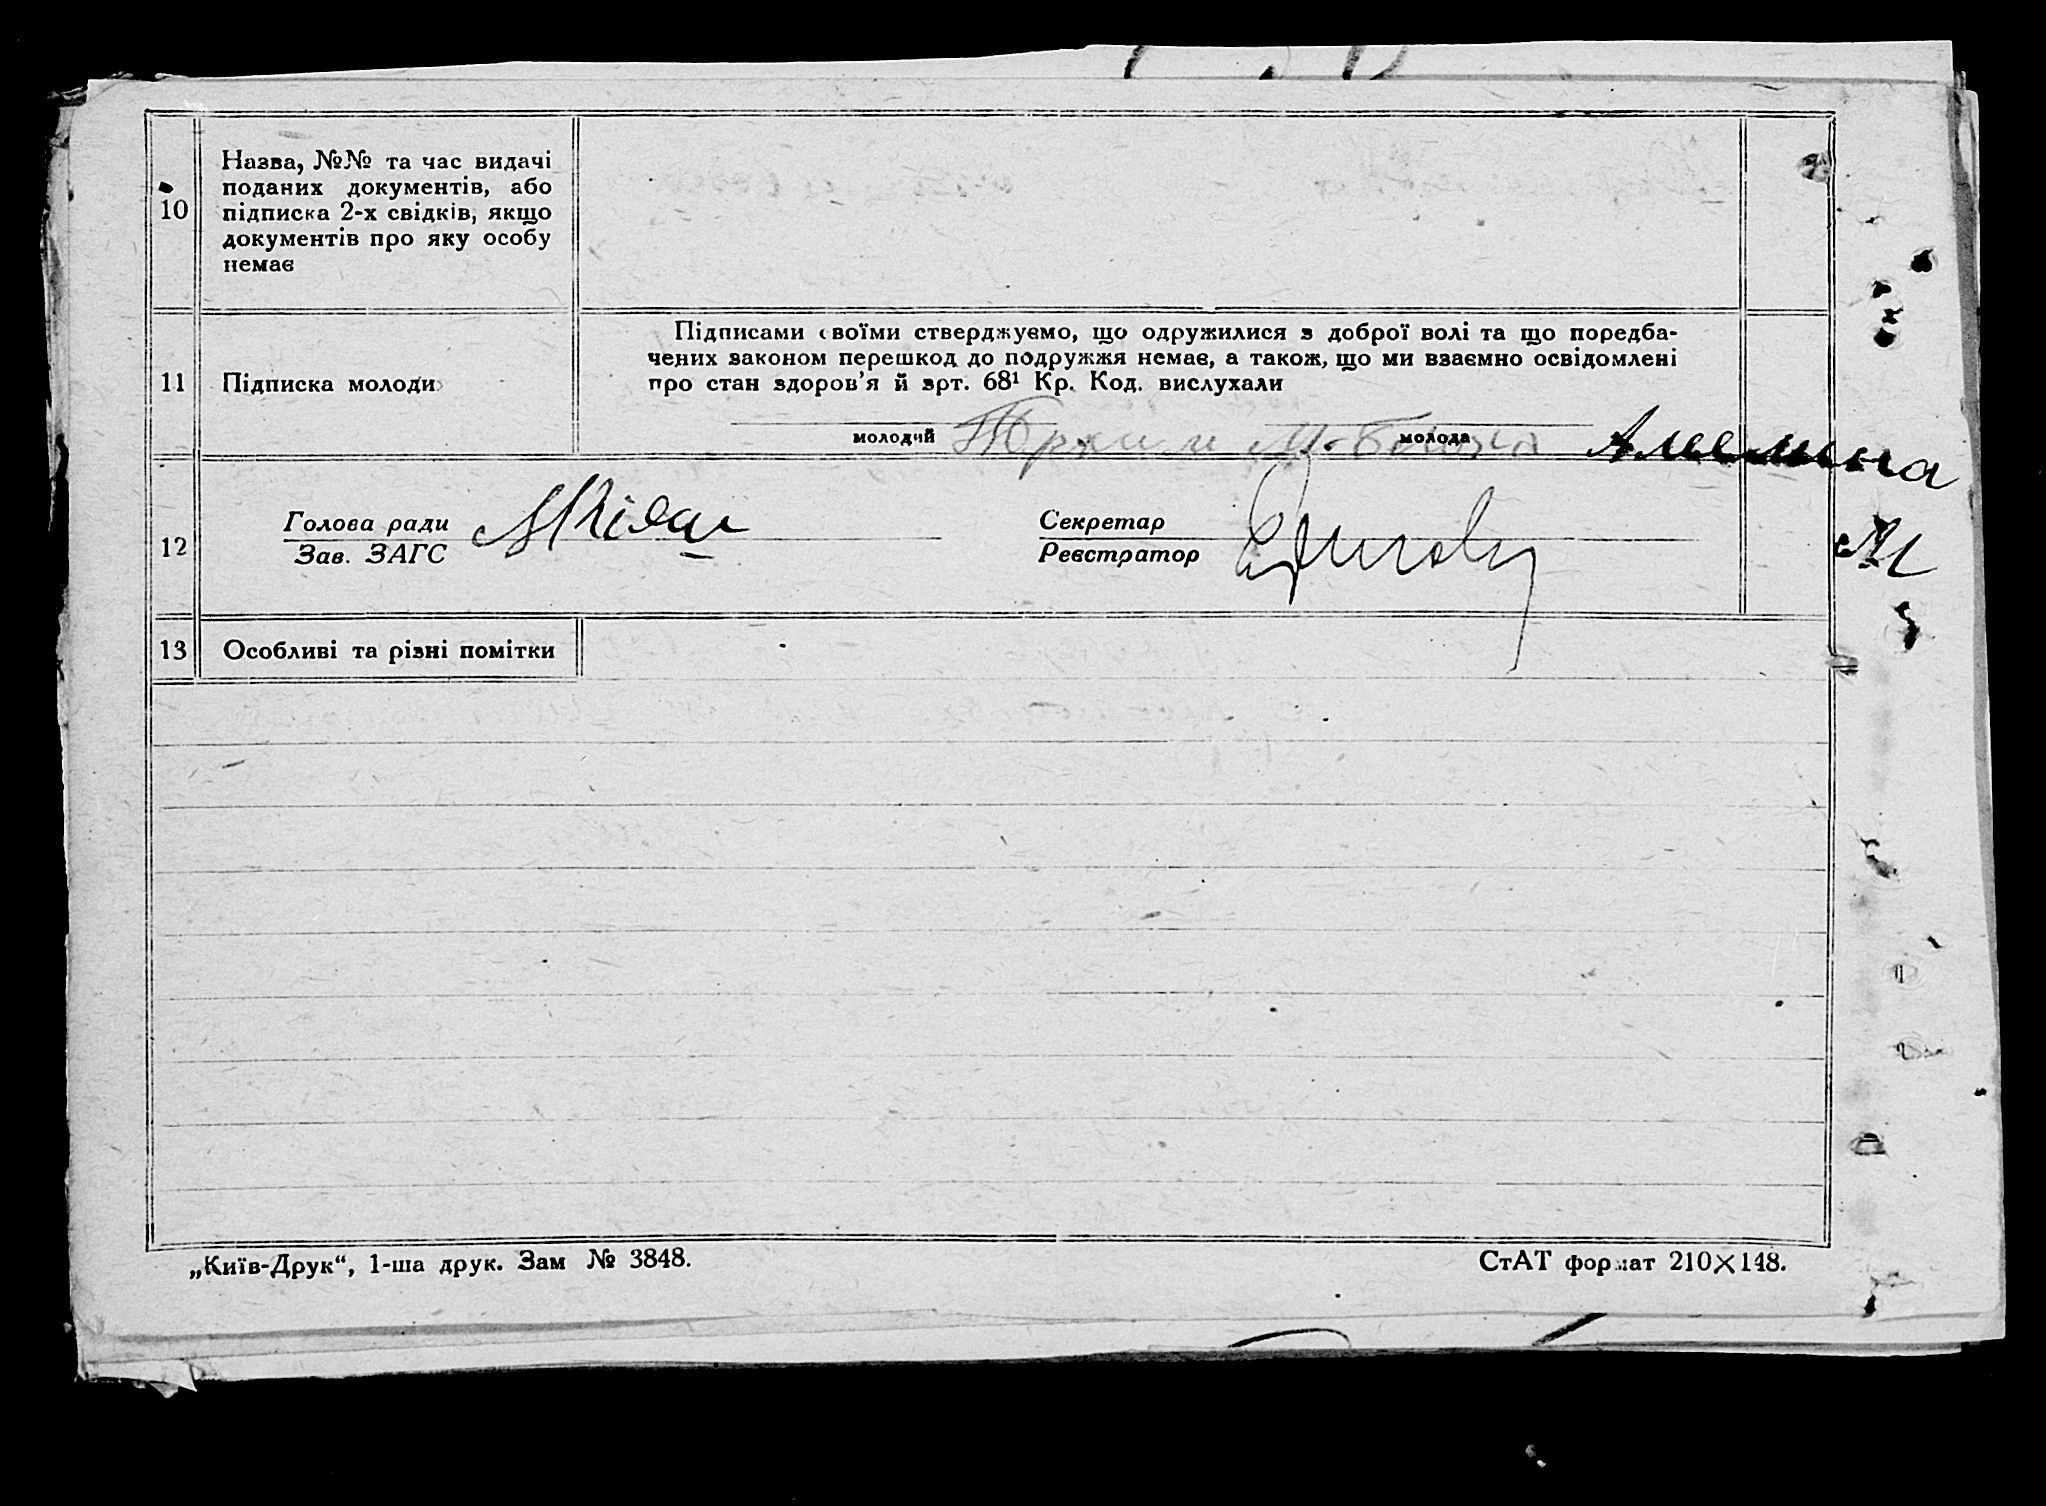 10
Назва, №№ та час видачі
поданих документів, або
підписка 2-х свідків, якщо
документів про яку особу
немає
11
Підписка молоди
Підписами своїми стверджуємо, що одружилися з доброї волі та що поредба-
чених законом перешкод до подружжя немає, а також, що ми взаємно освідомлені
про стан здоров’я й арт. 68¹ Кр. Код. вислухали
молодий
молода
12
Голова ради
Зав. ЗАГС
Секретар
Реєстратор
М
13
Особливі та різні помітки
„Київ-Друк“, 1-ша друк. Зам № 3848.
СтАТ формат 210×148.